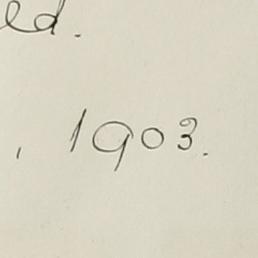 ed.
, 1903.